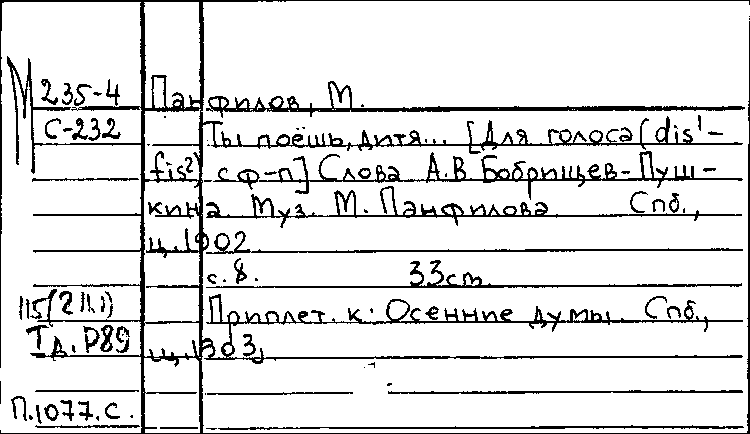 М 235-4 Панфилов, М.
С-232 Ты поёшь, дитя... [Для голоса (dis¹-
fis²) с ф-п] Слова А.В. Бобрищев-Пуш-
кина. Муз. М. Панфилова. Спб.,
ц. 1902.
с. 8. 33cm.
115(2 II.1) Приплет. к: Осенние думы. Спб.,
I д. Р89 ц. 1903,
П.1077.С.